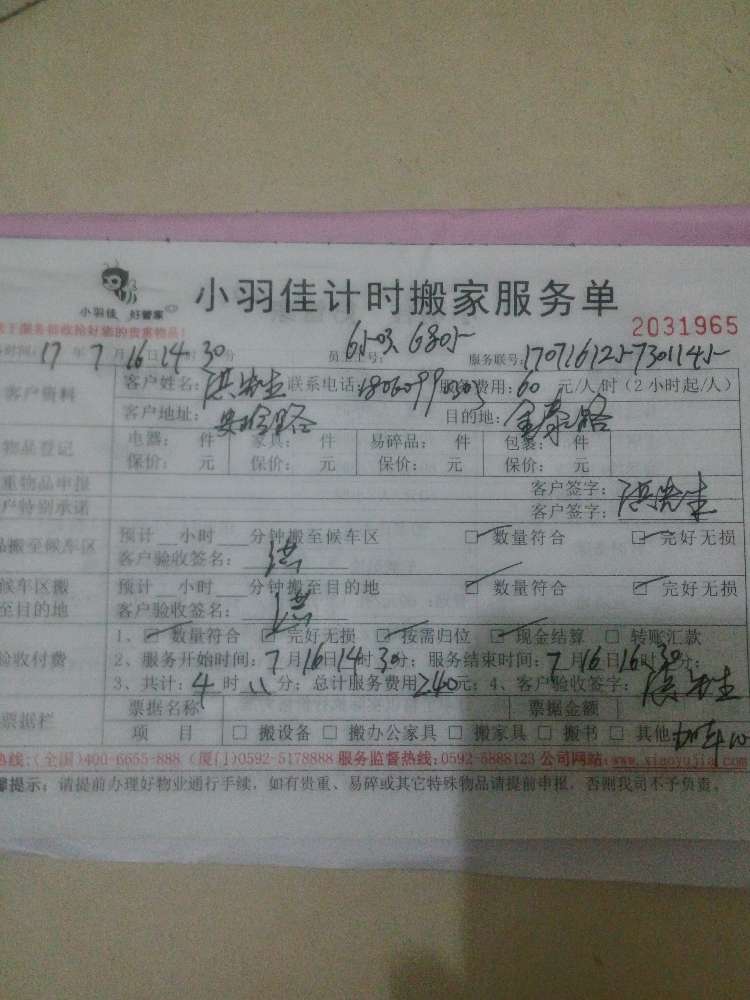 小羽佳 好管家
小羽佳计时搬家服务单
2031965
17年7月16日14时30分 服务联号:
客户资料 客户姓名:洪先生 联系电话: 服务费用:60元/人/时(2小时起/人)
客户地址: 目的地:
物品登记 电器: 件 家具: 件 易碎品: 件 包裹: 件
保价: 元 保价: 元 保价: 元 保价: 元
重物品申报 客户签字:洪先生
户特别承诺 客户签字:
品搬至候车区 预计__小时__分钟搬至候车区 □ 数量符合 □ 完好无损
客户验收签名:洪
候车区搬至目的地 预计__小时__分钟搬至目的地 □ 数量符合 □ 完好无损
客户验收签名:洪
验收付费 1、□ 数量符合 □ 完好无损 □ 按需归位 □ 现金结算 □ 转账汇款
2、服务开始时间:7月16日14时30分;服务结束时间:7月16日16时30分;
3、共计:4时 分;总计服务费用240元;4、客户验收签字:洪先生
票据栏 票据名称 票据金额
项 目 □ 搬设备 □ 搬办公家具 □ 搬家具 □ 搬书 □ 其他
热线:(全国)400-6655-888 (厦门)0592-5178888 服务监督热线:0592-5888123 公司网站:www.xiaoyujia.com
馨提示:请提前办理好物业通行手续,如有贵重、易碎或其它特殊物品请提前申报,否则我司不予负责。